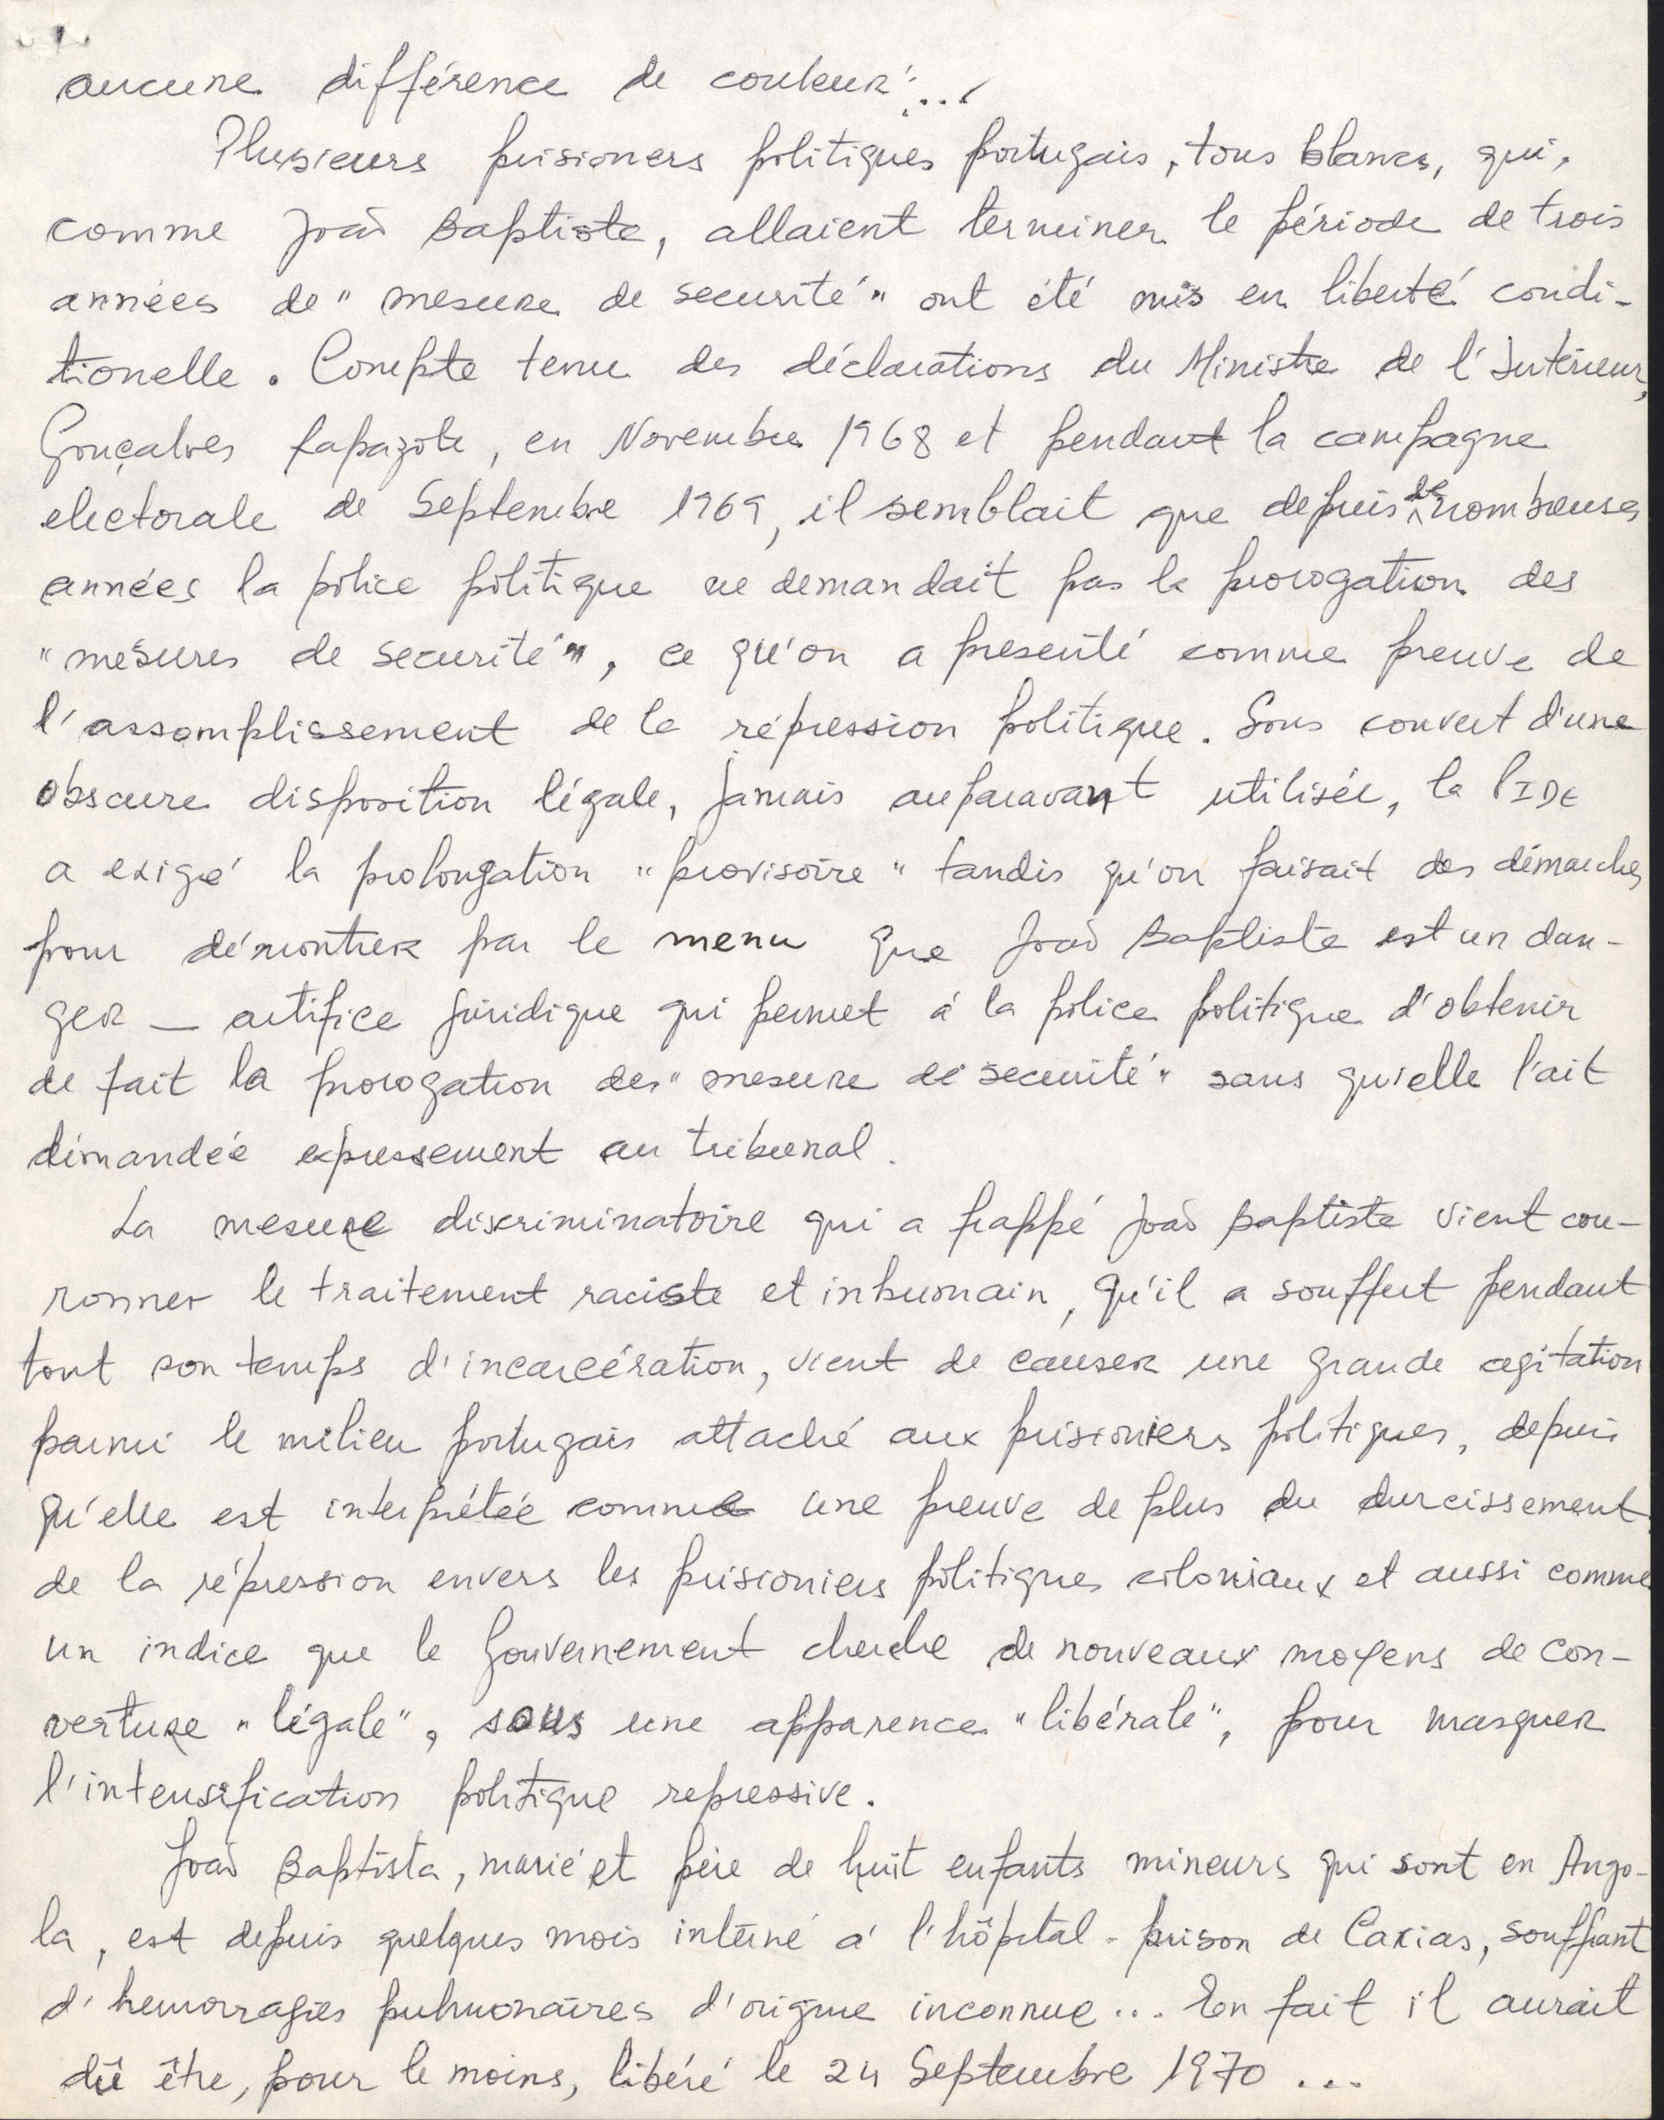 aucune différence de couleur"...
Plusieurs prisioners politiques portugais, tous blancs, qui,
comme João Baptiste, allaient terminer le période de trois
années de "mesure de securité" ont été mis en liberté condi-
tionelle. Compte tenu des déclarations du Ministre de l'Intérieur,
Gonçalves Rapazote, en Novembre 1968 et pendant la campagne
electorale de Septembre 1969, il semblait que depuis de nombreuses
années la police politique ne demandait pas la prorogation des
"mesures de securité", ce qu'on a presenté comme preuve de
l'assomplissement de la répression politique. Sous couvert d'une
obscure disposition légale, jamais auparavant utilisée, la PIDE
a exigé la prolongation "provisoire" tandis qu'on faisait des démarches
pour démontrer par le menu que João Baptiste est un dan-
ger — artifice juridique qui permet á la police politique d'obtenir
de fait la prorogation des "mesure de securité" sans qu'elle l'ait
démandée expressement au tribunal.
La mesure discriminatoire qui a frappé João Baptiste vient cou-
ronner le traitement raciste et inhumain, qu'il a souffert pendant
tout son temps d'incarcération, vient de causer une grande agitation
parmi le milieu portugais attaché aux prisioniers politiques, depuis
qu'elle est interprétée comme une preuve de plus du durcissement
de la répression envers les prisioniers politiques coloniaux et aussi comme
un indice que le Gouvernement cherche de nouveaux moyens de cou-
verture "légale", sous une apparence "libérale", pour masquer
l'intensification politique repressive.
João Baptista, marié et père de huit enfants mineurs qui sont en Ango-
la, est depuis quelques mois interné á l'hôpital-prison de Caxias, souffrant
d'hemorragies pulmonaires d'origine inconnue... En fait il aurait
dû être, pour le moins, libéré le 24 Septembre 1970...